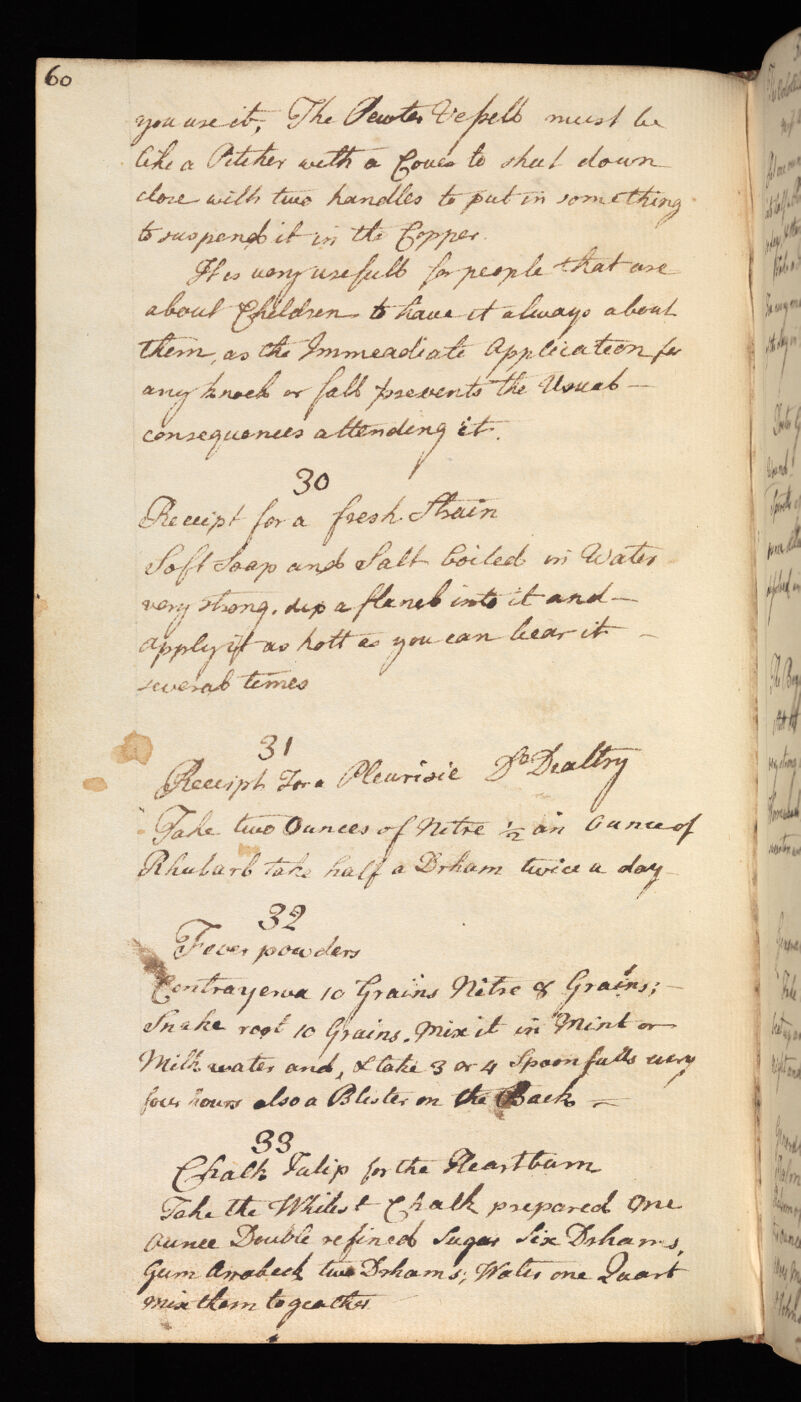 60
you use it, The Pewter Vessell must be
like a Pitcher with a Cover to shut down
close with two handles to put in something
to suspend it in the Copper.
It is very usefull for people that are
about Children to have it always about
them, as the Immeadiate Application for
any knock or fall prevents the Usual —
consequences attending it.
30
Receipt for a fresh Strain
Soft Soap and Salt boiled in Water
very strong. dip a flanel into it and —
apply it as hott as you can bear it —
several times
31
Receipt For a Pleurisie Dr Dealtry
Take two Ounces of Nitre ½ an Ounce of
Rhubarb take half a Drham twice a day
32
Fever powders
Contrayerva 10 Grains Nitre 8 Grains; —
Snake root 10 Grains. Mix it in Mint or
Milk water and, & take 3 or 4 Spoonfulls every
four hours also a Blister on the Back —
33
Chalk Julip for the Heartburn
Take the Whitest Chalk prepared One
Ounce Double refined Sugar Six Drhams,
Gum Arrabeck two Drhams; Water one Quart
mix them togeather